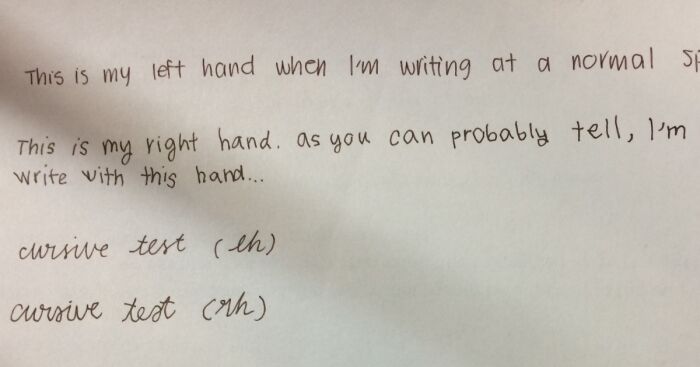 This is my left hand when I'm writing at a normal
This is my right hand. as you can probably tell, I'm
write with this hand...
cursive test (lh)
cursive test (rh)